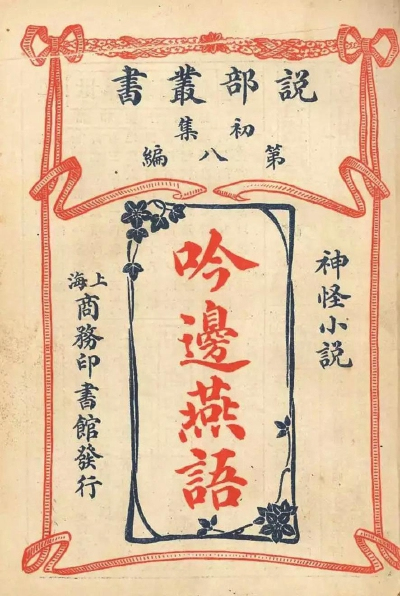 說部叢書
初集
第八編
神怪小説
吟邊燕語
上海
商務印書館發行